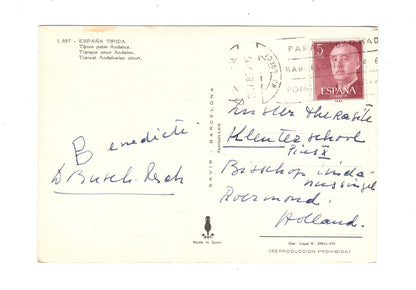 1.597 - ESPAÑA TIPICA.
Típico patio Andaluz.
Typique cour Andalou.
Typical Andalusian court.
Benedicte
5
ESPAÑA
CORREOS
Zuster
Kleuterschool
Pius X
Bisschop Linda-
nussingel
Roermond.
Holland.
SAVIR BARCELONA
Made in Spain
Dep. Legal B.
(REPRODUCCION PROHIBIDA)